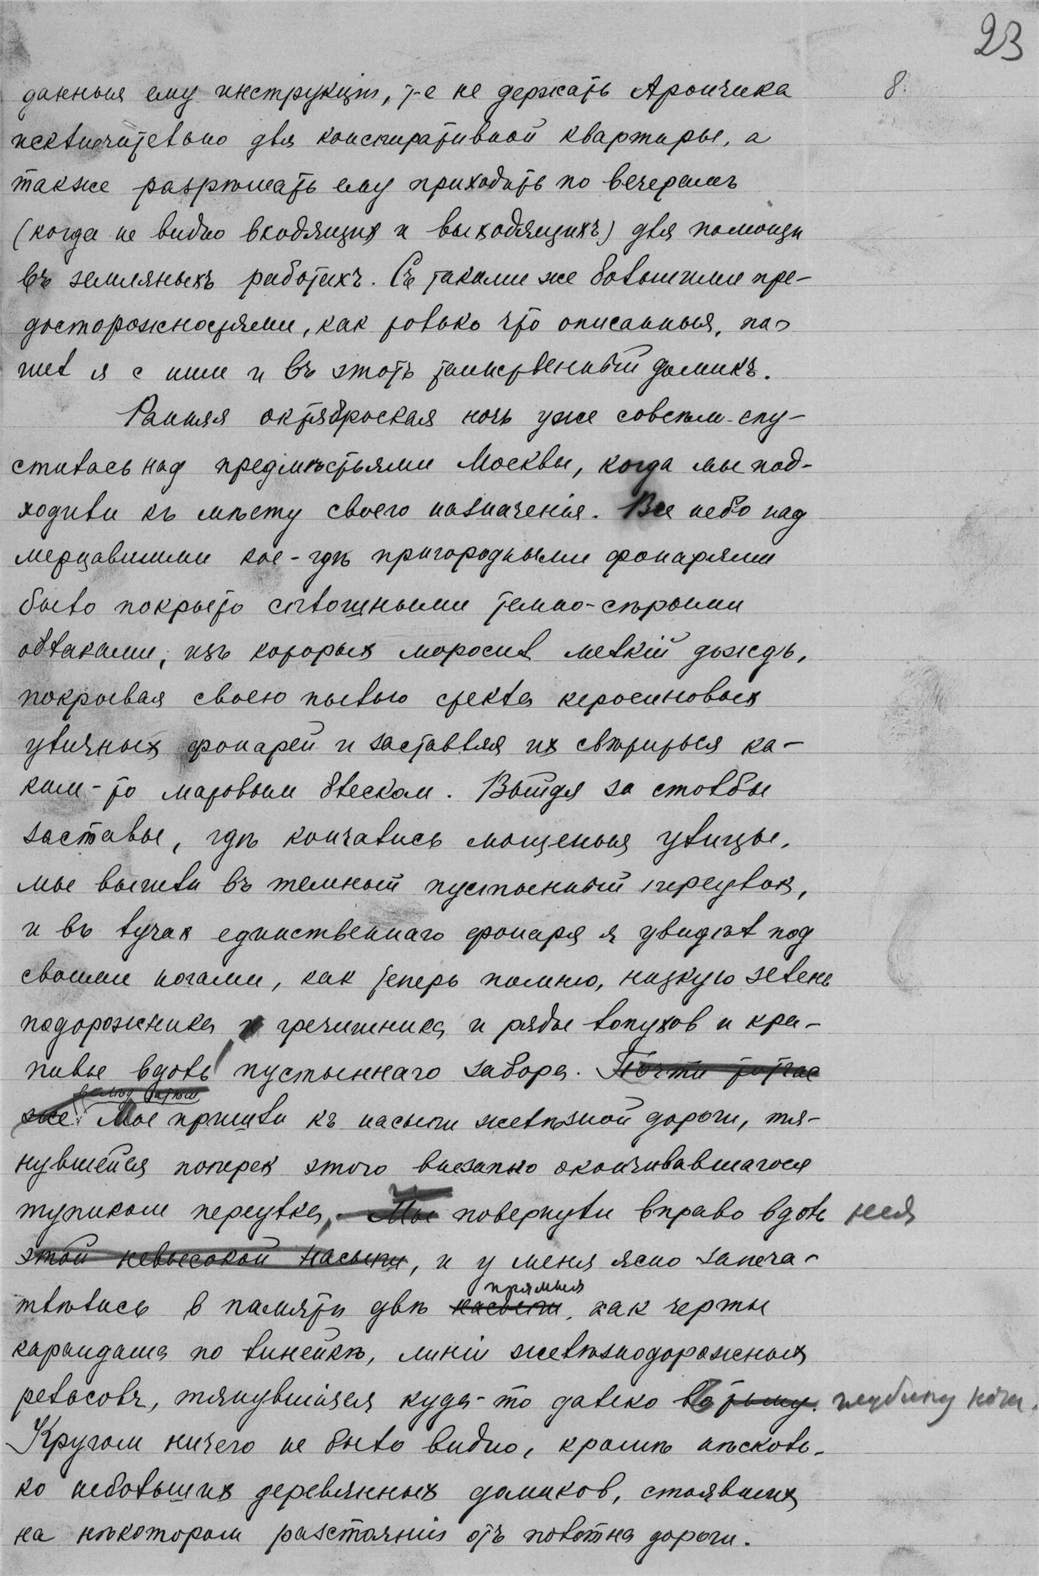 23
8.
данныя ему инструкціи, т-е не держать Арончика
исключительно для конспиративной квартиры, а
также разрѣшать ему приходить по вечерамъ
(когда не видно входящих и выходящихъ) для помощи
въ земляныхъ работахъ. Съ такими же большими пре-
досторожностями, как только что описанныя, по-
шел я с ним и въ этотъ таинственный домикъ.
Ранняя октябрьская ночь уже совсѣм спу-
стилась над предмѣстьями Москвы, когда мы под-
ходили къ мѣсту своего назначенія. Все небо над
мерцавшими кое-гдѣ пригородными фонарями
было покрыто сплошными темно-сѣрыми
облаками, изъ которых моросил мелкій дождь,
покрывая своею пылью стекла керосиновых
уличных фонарей и заставляя их свѣтиться ка-
ким-то матовым блеском. Выйдя за столбы
заставы, гдѣ кончались мощеныя улицы,
мы вышли въ темный пустынный переулок,
и въ лучах единственнаго фонаря я увидѣл под
своими ногами, как теперь помню, низкую зелень
подорожника и гречишника и ряды лопухов и кра-
пивы вдоль пустыннаго забора. Почти тотчас
же Мы пришли къ насыпи желѣзной дороги, тя-
нувшейся поперек этого внезапно оканчивавшагося
тупиком переулка, Мы повернули вправо вдоль нея
этой невысокой насыпи, и у меня ясно запеча-
тлѣлись в памяти двѣ насыпи прямыя, как черты
карандаша по линейкѣ, линіи желѣзнодорожных
рельсовъ, тянувшіяся куда-то далеко въ тьму. глубину ночи.
Кругом ничего не было видно, кромѣ нѣсколь-
ко небольших деревянных домиков, стоявших
на нѣкотором разстояніи отъ полотна дороги.